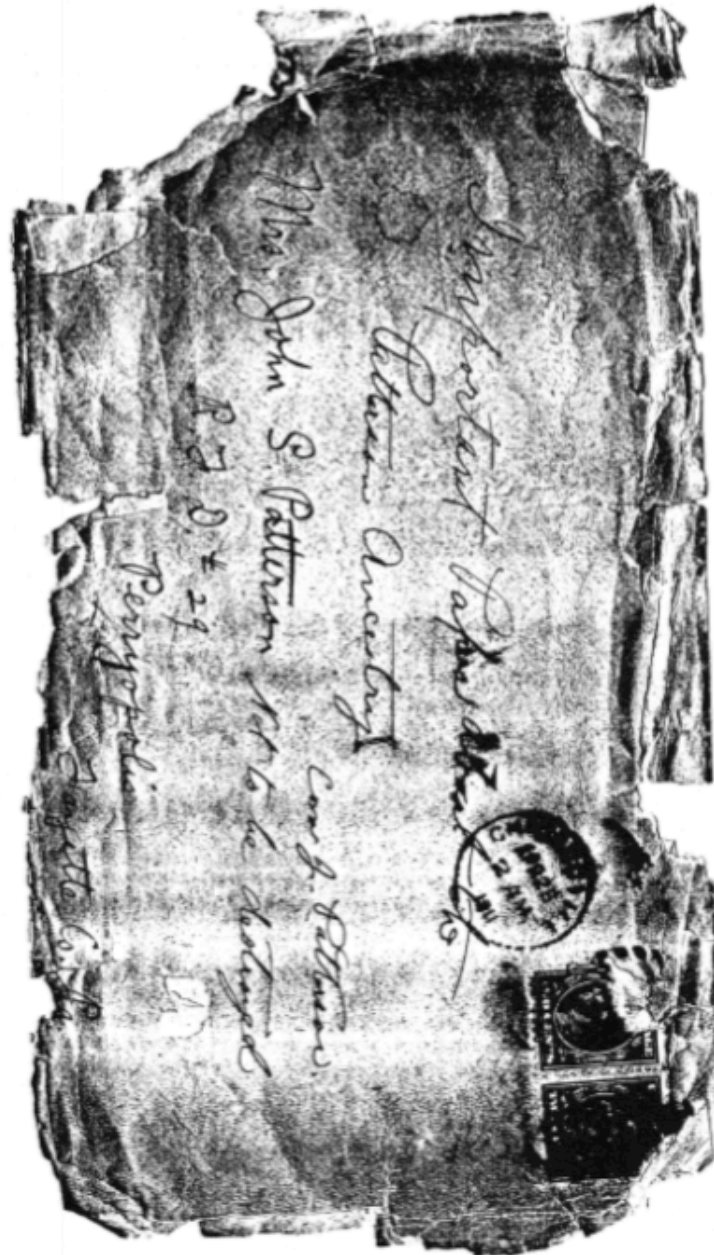 Important Papers
Patterson Ancestry
Cora J. Patterson
Mrs. John S. Patterson Not to be destroyed
R. F. D. # 29
Perryopolis
Fayette Co. Pa
2 AM